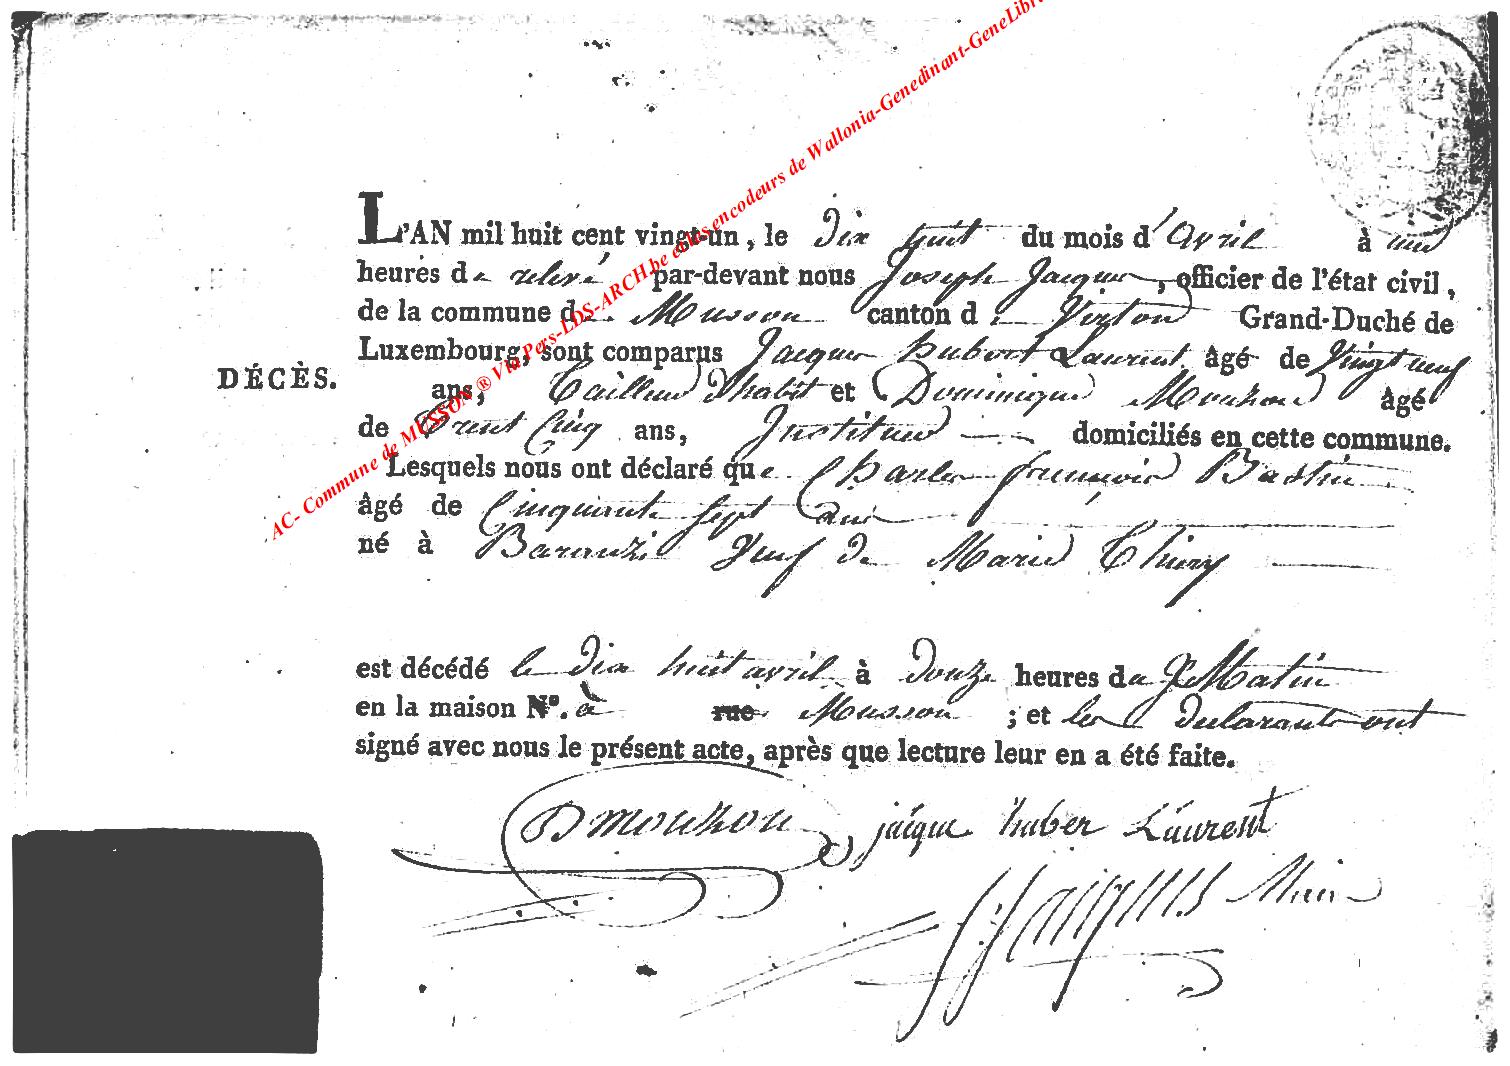 AC- Commune de MUSSON ® Via Pers-LDS-ARCH.be et les encodeurs de Wallonia-Genedinant-GeneLibr
L'AN mil huit cent vingt-un, le dix huit du mois d'Avril à une
heures de relevé par-devant nous Joseph Jacques, officier de l'état civil,
de la commune de Musson canton de Virton Grand-Duché de
Luxembourg, sont comparus Jacques hubert Laurent âgé de Vingt neuf
DÉCÈS.
ans, Tailleur d'habit et Dominique Mouzon âgé
de Trent Cinq ans, Instituteur domiciliés en cette commune.
Lesquels nous ont déclaré que Charles françois Bastin
âgé de Cinquante Sept ans
né à Baranzi Veuf de Marie Thiery
est décédé le dix huit avril à douze heures du Matin
en la maison Nº. à rue Musson ; et les declarants ont
signé avec nous le présent acte, après que lecture leur en a été faite.
D mouzon jacque huber Laurent